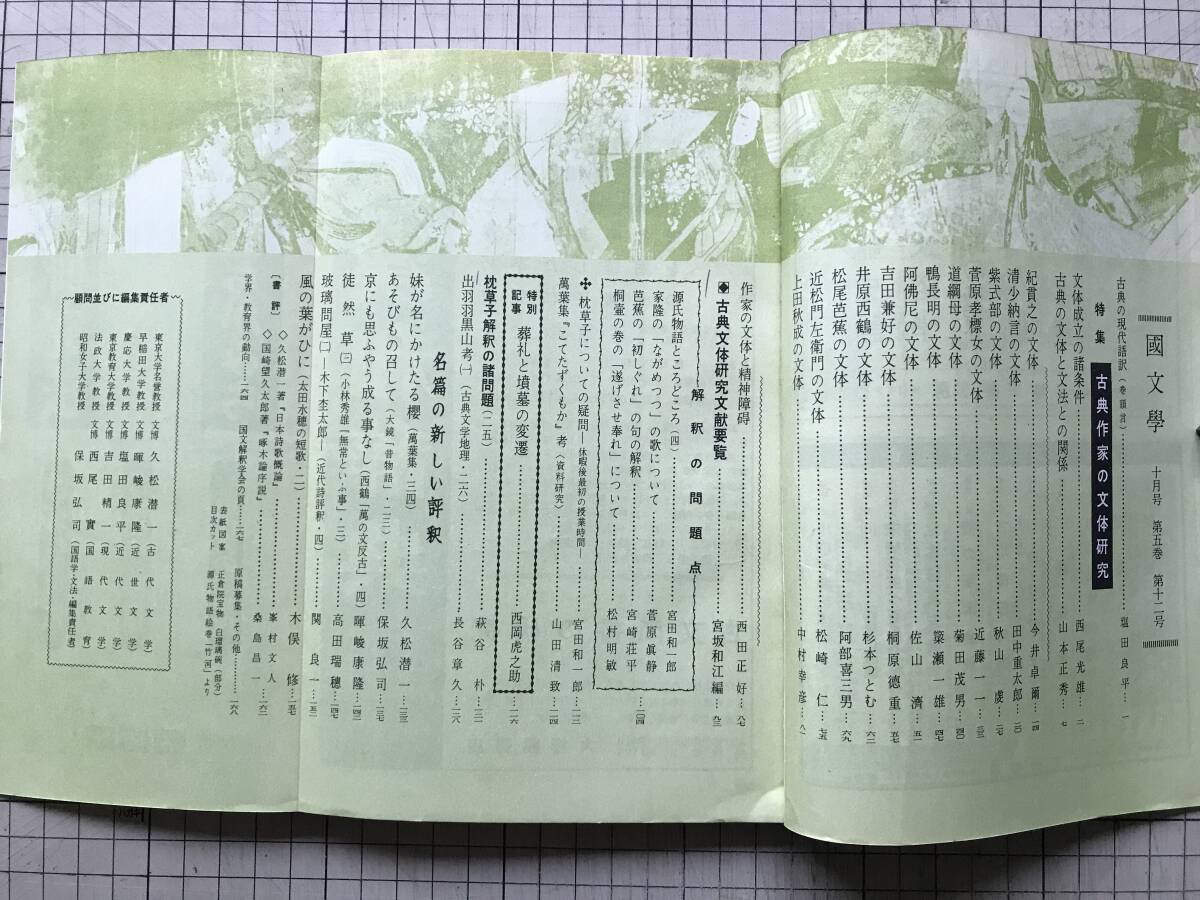 國文學 十月号 第五巻 第十二号
古典の現代語訳(巻頭言)………塩田良平…一
特集 古典作家の文体研究
文体成立の諸条件………西尾光雄…二
古典の文体と文法との関係………山本正秀…七
紀貫之の文体………今井卓爾…一四
清少納言の文体………田中重太郎…二〇
紫式部の文体………秋山虔…二七
菅原孝標女の文体………近藤一一…三三
道綱母の文体………菊田茂男…四〇
鴨長明の文体………簗瀬一雄…四七
阿佛尼の文体………佐山済…五一
吉田兼好の文体………桐原徳重…五七
井原西鶴の文体………杉本つとむ…六二
松尾芭蕉の文体………阿部喜三男…六九
近松門左衛門の文体………松崎仁…七五
上田秋成の文体………中村幸彦…八一
作家の文体と精神障碍………西田正好…八七
◆古典文体研究文献要覧………宮坂和江編…九三
解釈の問題点
源氏物語ところどころ(四)………宮田和一郎
家隆の「ながめつつ」の歌について………菅原眞静
芭蕉の「初しぐれ」の句の解釈………宮崎荘平
桐壷の巻の「遂げさせ奉れ」について………松村明敏
…一〇四
枕草子についての疑問―休暇後最初の授業時間―………宮田和一郎…一一三
萬葉集『こてたずくもか』考(資料研究)………山田清致…一一四
特別記事 葬礼と墳墓の変遷………西岡虎之助…一一六
枕草子解釈の諸問題(二五)………萩谷朴…一二一
出羽羽黒山考(一)(古典文学地理・二六)………長谷章久…一二八
名篇の新しい評釈
妹が名にかけたる櫻(萬葉集・三四)………久松潜一…一三二
あそびもの召して(大鏡「昔物語」・二三)………保坂弘司…一三七
京にも思ふやう成る事なし(西鶴「萬の文反古」・四)………暉峻康隆…一四二
徒然草(三)(小林秀雄「無常といふ事」・三)………高田瑞穂…一四七
玻璃問屋(二)―木下杢太郎―(近代詩評釈・四)………関良一…一五二
風の葉がひに(太田水穂の短歌・二)………木俣修…一五七
〔書評〕◇久松潜一著『日本詩歌概論』………峯村文人
◇国崎望久太郎著『啄木論序説』………桑島昌一…一六二
学界・教育界の動向…一六四 国文解釈学会の頁…一六七 原稿募集・その他…一六八
表紙図案 正倉院宝物 白瑠璃碗(部分)
目次カット 源氏物語絵巻「竹河」より
顧問並びに編集責任者
東京大学名誉教授 文博 久松潜一(古代文学)
早稲田大学教授 文博 暉峻康隆(近世文学)
慶応大学教授 塩田良平(近代文学)
東京教育大学教授 文博 吉田精一(現代文学)
法政大学教授 文博 西尾實(国語教育)
昭和女子大学教授 保坂弘司(国語学・文法・編集責任者)